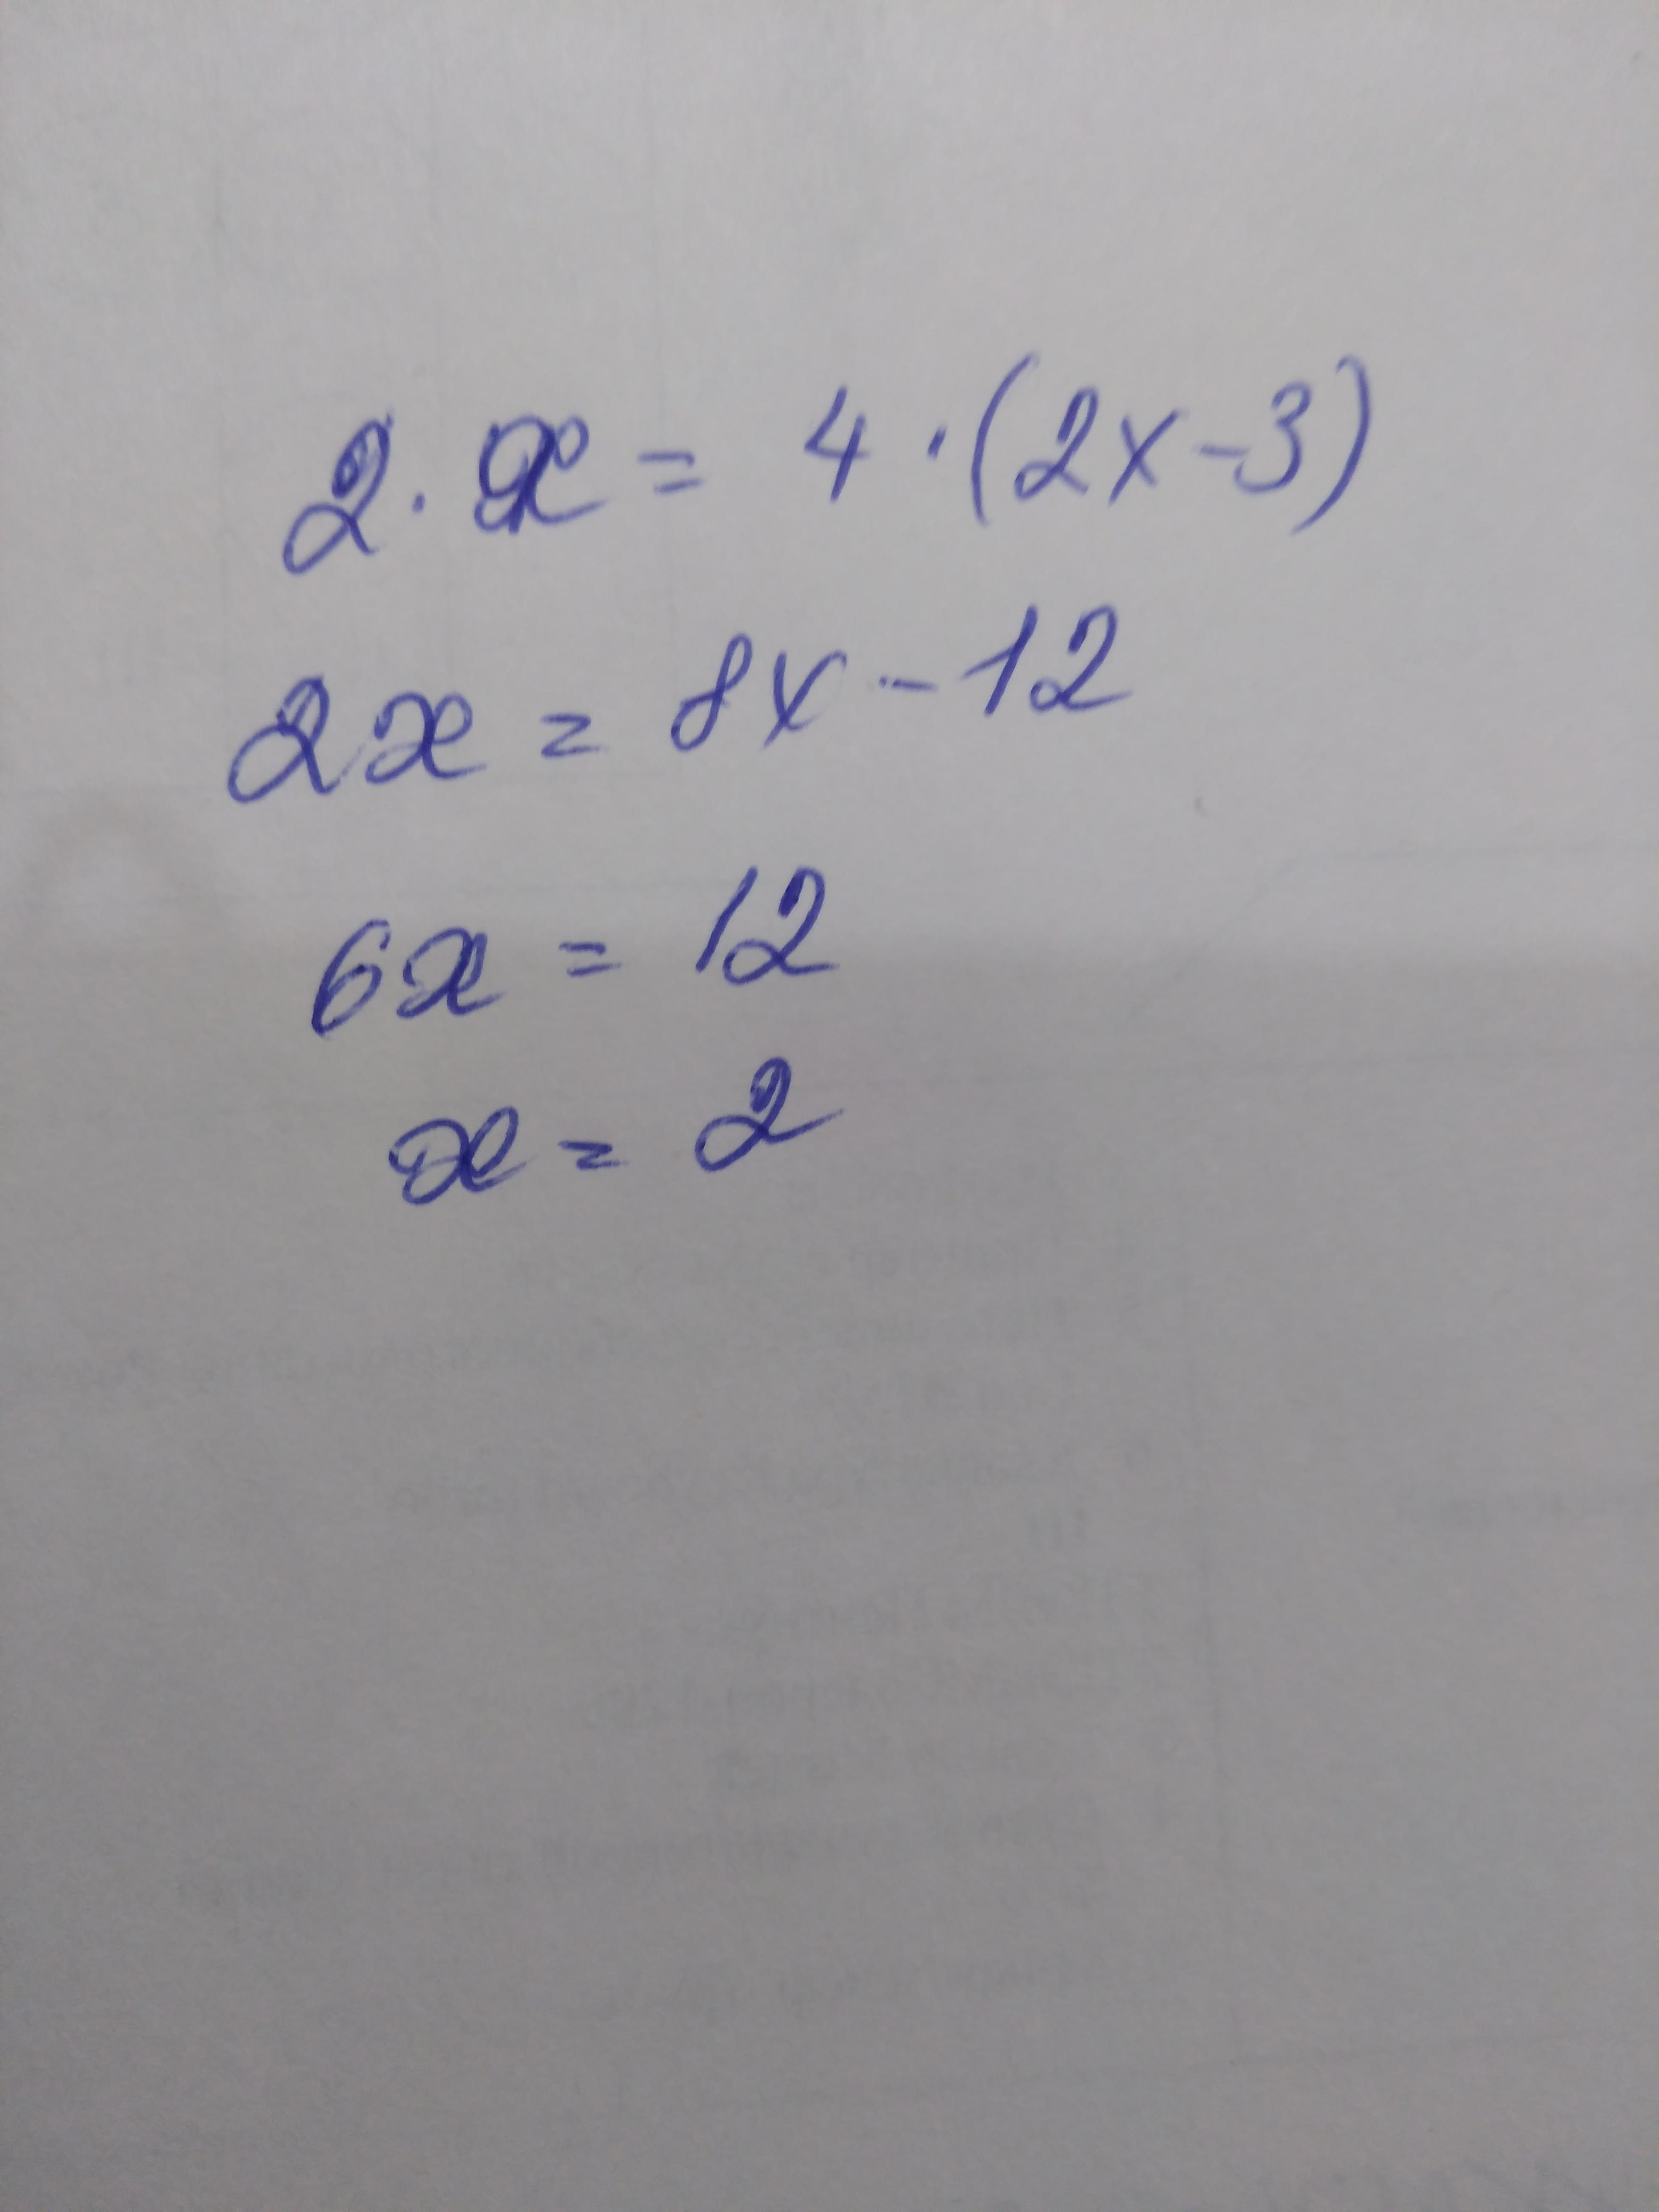 2 · x = 4 · (2x - 3)
2x = 8x - 12
6x = 12
x = 2